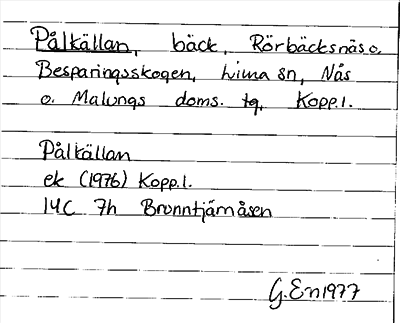 Pålkällan, bäck, Rörbäcksnäs o.
Besparingsskogen, Lima sn, Nås
o. Malungs doms. tg, Kopp.l.
Pålkällan
ek (1976) Kopp.l.
14C 7h Bronntjärnåsen
G.En 1977